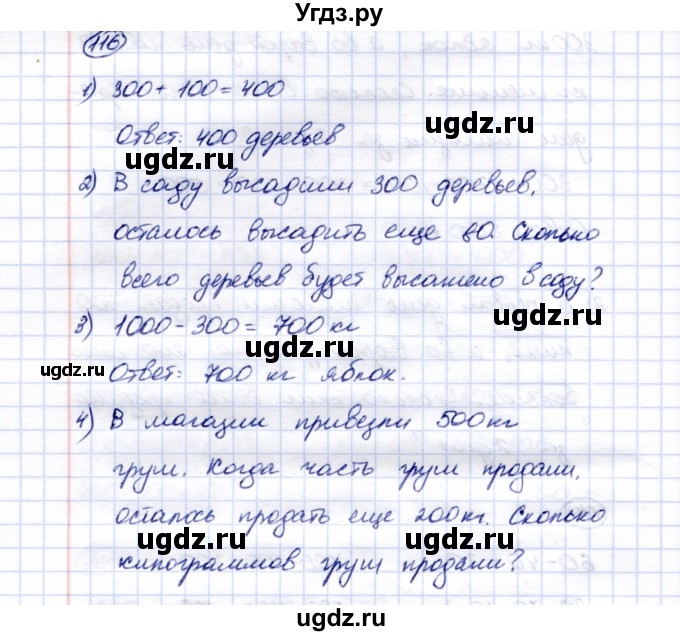 Угдз.ру
116
1) 300 + 100 = 400
Ответ: 400 деревьев
ugdz.ru ugdz.ru
2) В саду высадили 300 деревьев,
осталось высадить еще 80. Сколько
всего деревьев будет высажено в саду?
ugdz.ru
3) 1000 - 300 = 700 кг
ugdz.ru
ugdz.ru Ответ: 700 кг яблок.
4) В магазин привезли 500 кг
ugdz.ru
груш. Когда часть груш продали,
осталось продать еще 200 кг. Сколько
ugdz.ru ugdz.ru
килограммов груш продали?